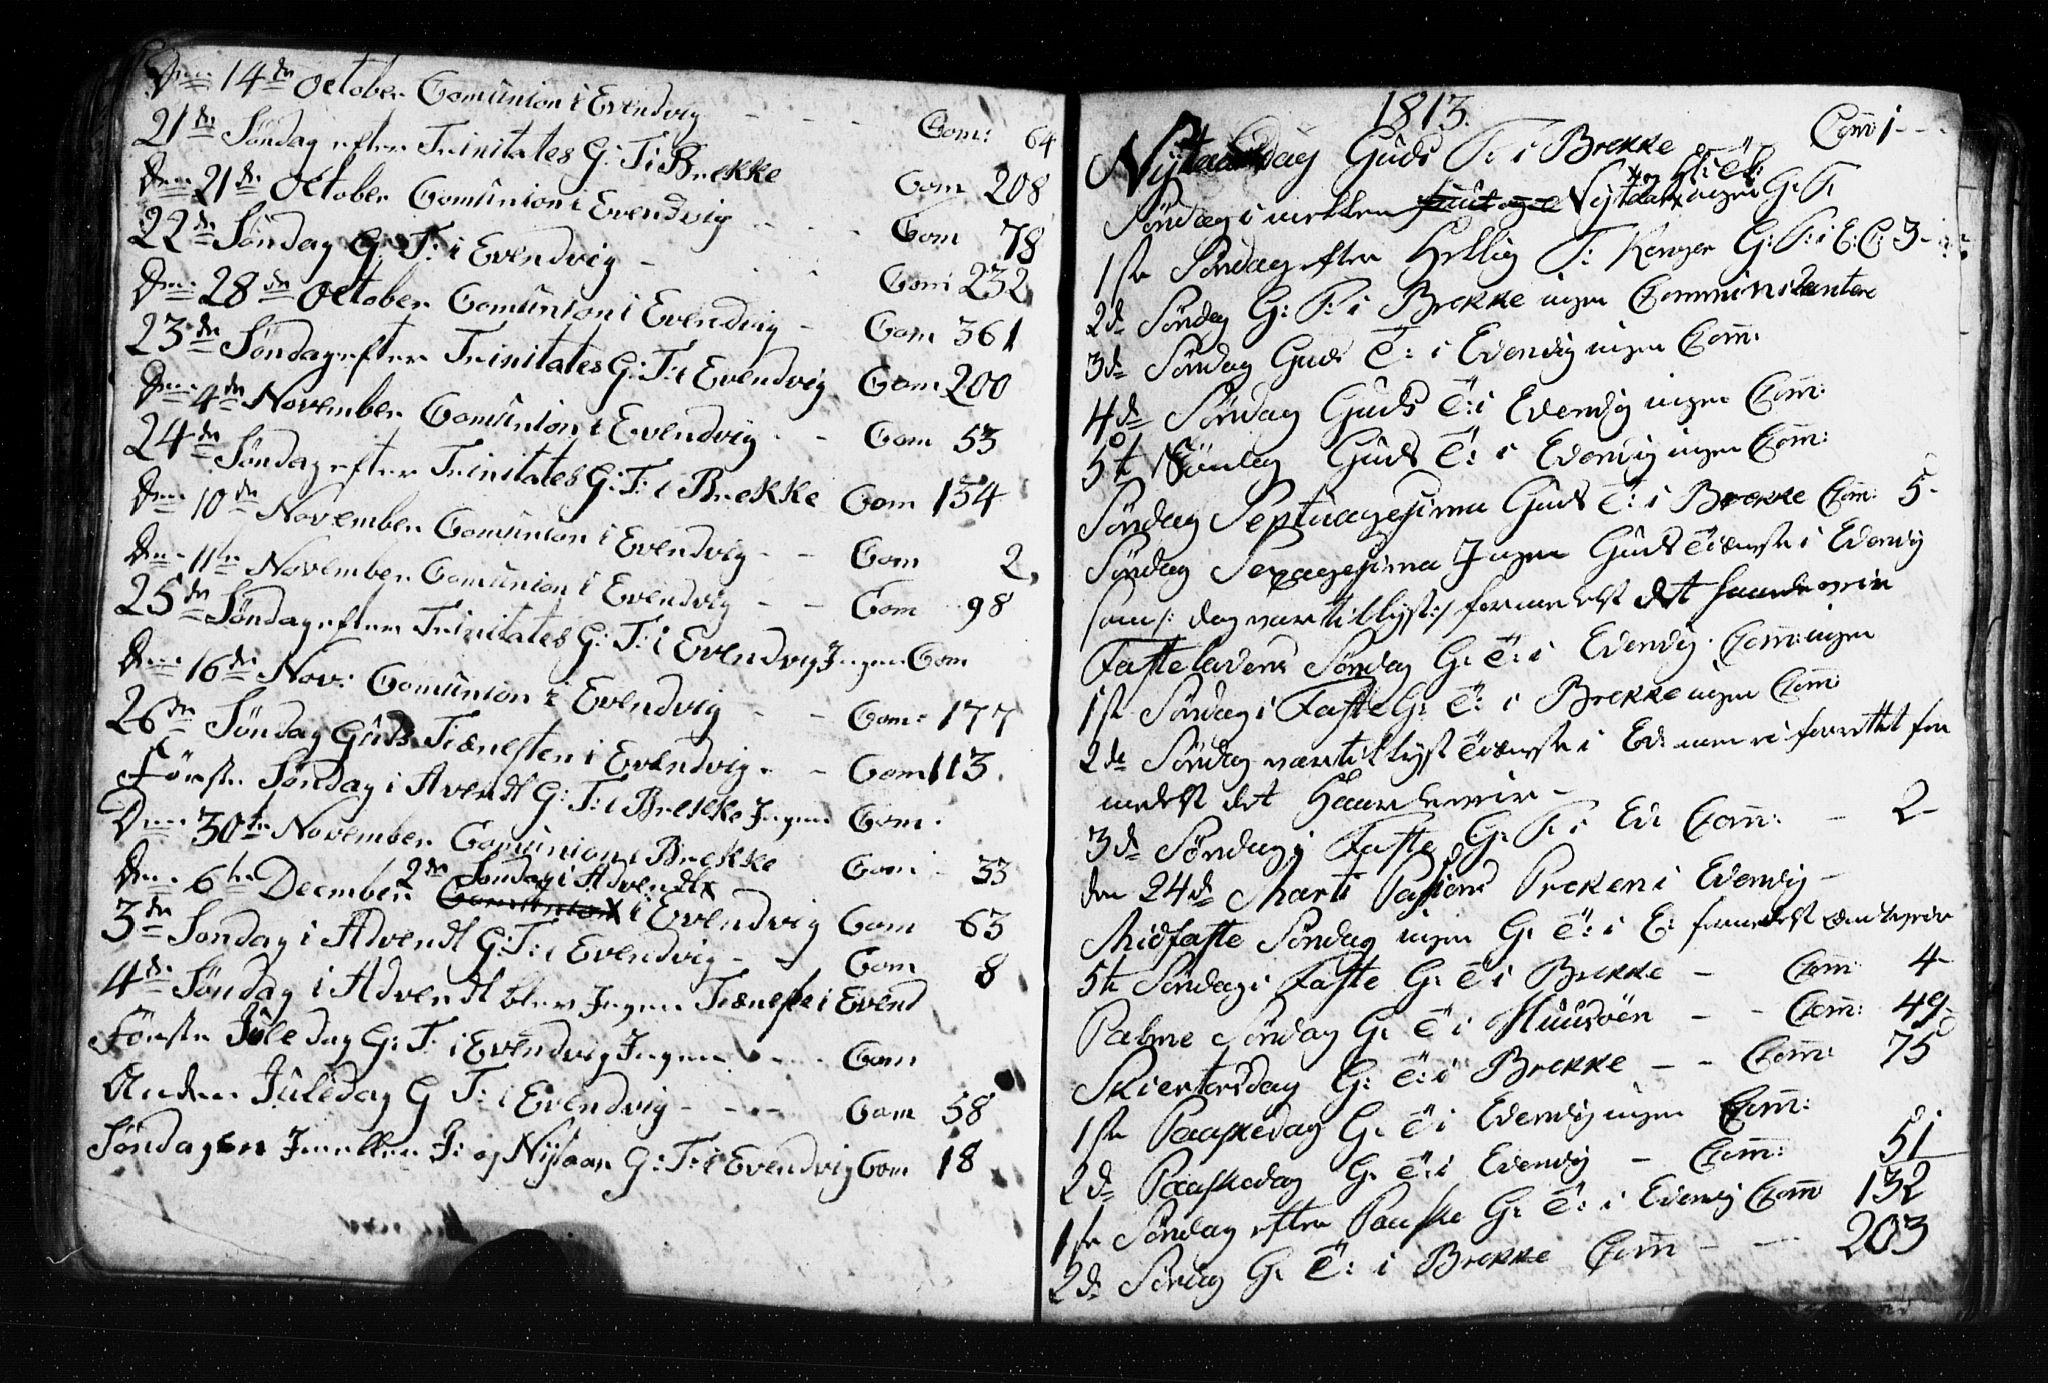 Den 14de October Comunion i Evendvig - - - Com: 64
21de Søndag efter Trinitates G: T: i Brekke Com 208
Den 21de October Comunion i Evendvig - - - Com 78
22de Søndag G: T: i Evendvig - Com 232
Den 28de October Comunion i Evendvig - Com 361
23de Søndag efter Trinitates G: T: i Evendvig Com 200
Den 4de November Comunion i Evendvig - - Com 53
24de Søndag efter Trinitates G: T: i Brekke Com 154
Den 10de November Comunion i Evendvig - - Com 2
Den 11te November Comunion i Evendvig - - Com 98
25de Søndag efter Trinitates G: T: i Evendvig Ingen Com
Den 16de Nov: Comunion i Evendvig - - Com: 177
26de Søndag Guds Tienesten i Evendvig - - Com 113
Første Søndag i Advendt G: T: i Brekke Ingen Com.
Den 30te November Comunion i Brekke Com 33
2den Søndag i Advendt
Den 6te Decmber Comunion i Evendvig Com 63
3de Søndag i Advendt G: T: i Evendvig - - Com 8
4de Søndag i Advendt blev Ingen Tieneste i Evend
Første Juledag G: T: i Evendvig Ingen - - - Com
Anden Juledag G T: i Evendvig - - - Com 58
Søndagen Imellem J: og Nijtaar G: T: i Evendvig Com 18
1813.
Nytaarsdag Guds T: i Brekke Com 1 - -
Søndag imellem Nytaar ingen G: T:
1ste Søndag efter Hellig T: Konger G: T: i E: C: 3
2de Søndag G: T: i Brekke ingen Comminicantere
3de Søndag Guds T: i Evendvig ingen Com:
4de Søndag Guds T: i Evendvig ingen Com:
5te Søndag Guds T: i Evendvig ingen Com:
Søndag Septuagesima Guds T: i Brekke Com: 5 -
Søndag Sexagesima Ingen Guds Tieneste i Evendvig
som /: dog var tillyst :/ formedelst det
Fastelavens Søndag G: T: i Evendvig Com: ingen
1ste Søndag i Faste G: T: i Brekke ingen Com:
2de Søndag var tillyst Tieneste i Ev: men ei forrettet for
medelst det
3de Søndag i Faste G: T: i Ev: Com: - 2 -
den 24de Marti Passions Preken i Evendvig -
Midfaste Søndag ingen G: T: i E: formedelst
5te Søndag i Faste G: T: i Brekke - Com: 4 -
Palme Søndag G: T: i Huusøen - - Com: 49
Skiertorsdag G: T: i Brekke - - Com: 75
1ste Paaskedag G: T: i Evendvig ingen Com:
2de Paaskedag G: T: i Evendvig - Com: 51
1ste Søndag efter Paaske G: T: i Evendvig Com 132
2de Søndag G: T: i Brekke Com - - 203